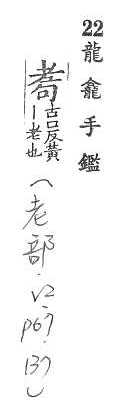 22龍龕手鑑
古口反黃
｜老也
(老部.V2.P67.137)